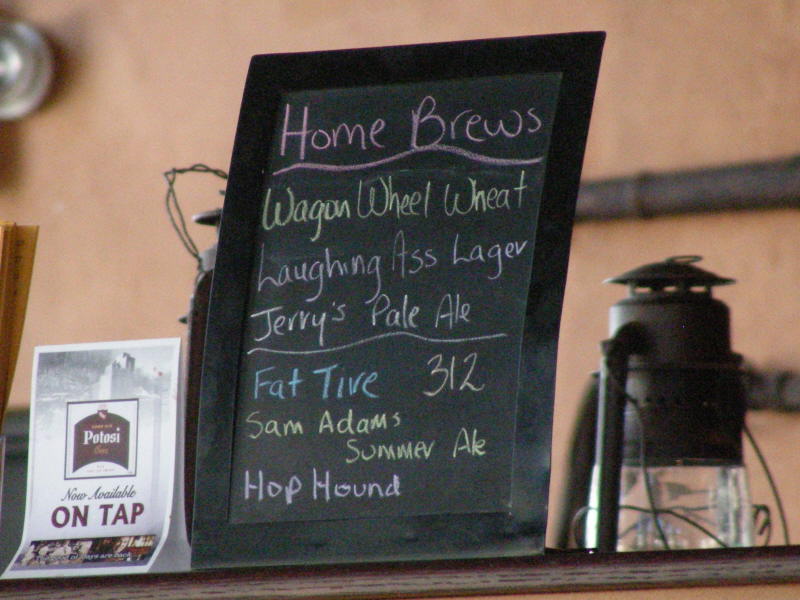 Home Brews
Wagon Wheel Wheat
Laughing Ass Lager
Jerry's Pale Ale
Fat Tire 312
Sam Adams
Summer Ale
Hop Hound
Potosi
Now Available
ON TAP